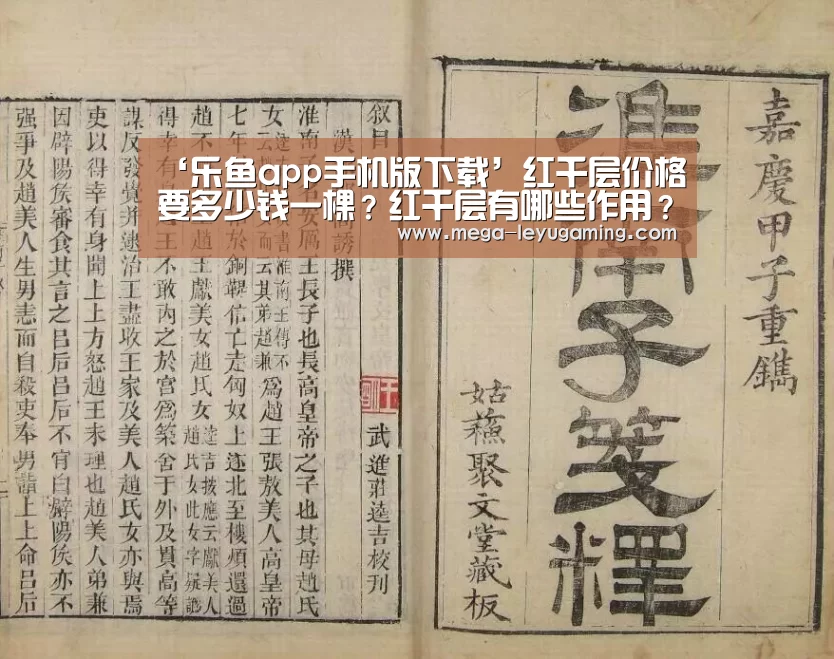 ‘乐鱼app手机版下载’红千层价格
要多少钱一棵？红千层有哪些作用？
www.mega-leyugaming.com
嘉慶甲子重鐫
淮南子箋釋
姑蘓聚文堂藏板
叙目
武進莊逵吉校刊
漢 高誘撰
淮南子名安厲王長子也長高皇帝之子也其母趙氏
女 書淮南王傳不 云 而云其弟趙兼 為趙王張敖美人高皇帝
七年 於銅鞮信亡走匈奴上遂北至樓煩還過
趙不 趙王獻美女趙氏女 逵吉按應云獻美人 趙氏女此女字疑譌
得幸有 趙王不敢內之於宮為築舍于外及貫高等
謀反發覺并逮治王盡收王家及美人趙氏女亦與焉
吏以得幸有身聞上上方怒趙王未理也趙美人弟兼
因辟陽侯審食其言之呂后呂后不肯白辟陽侯亦不
强爭及趙美人生男恚而自殺吏奉男詣上上命呂后